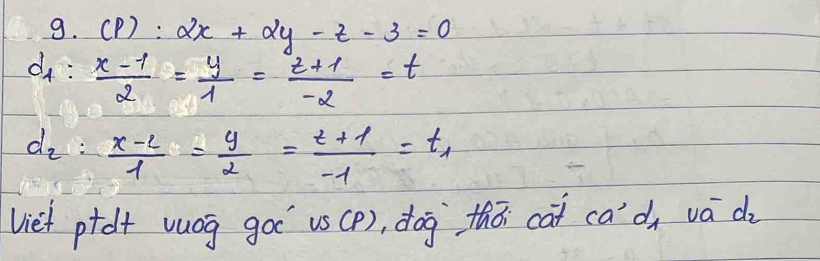 9. (P) : 2x + 2y - z - 3 = 0
d₁ : \frac{x-1}{2} = \frac{y}{1} = \frac{z+1}{-2} = t
d₂ : \frac{x-2}{1} = \frac{y}{2} = \frac{z+1}{-1} = t₁
Viết ptđt vuôg góc vs (P), đồg thời cắt cả d₁ và d₂